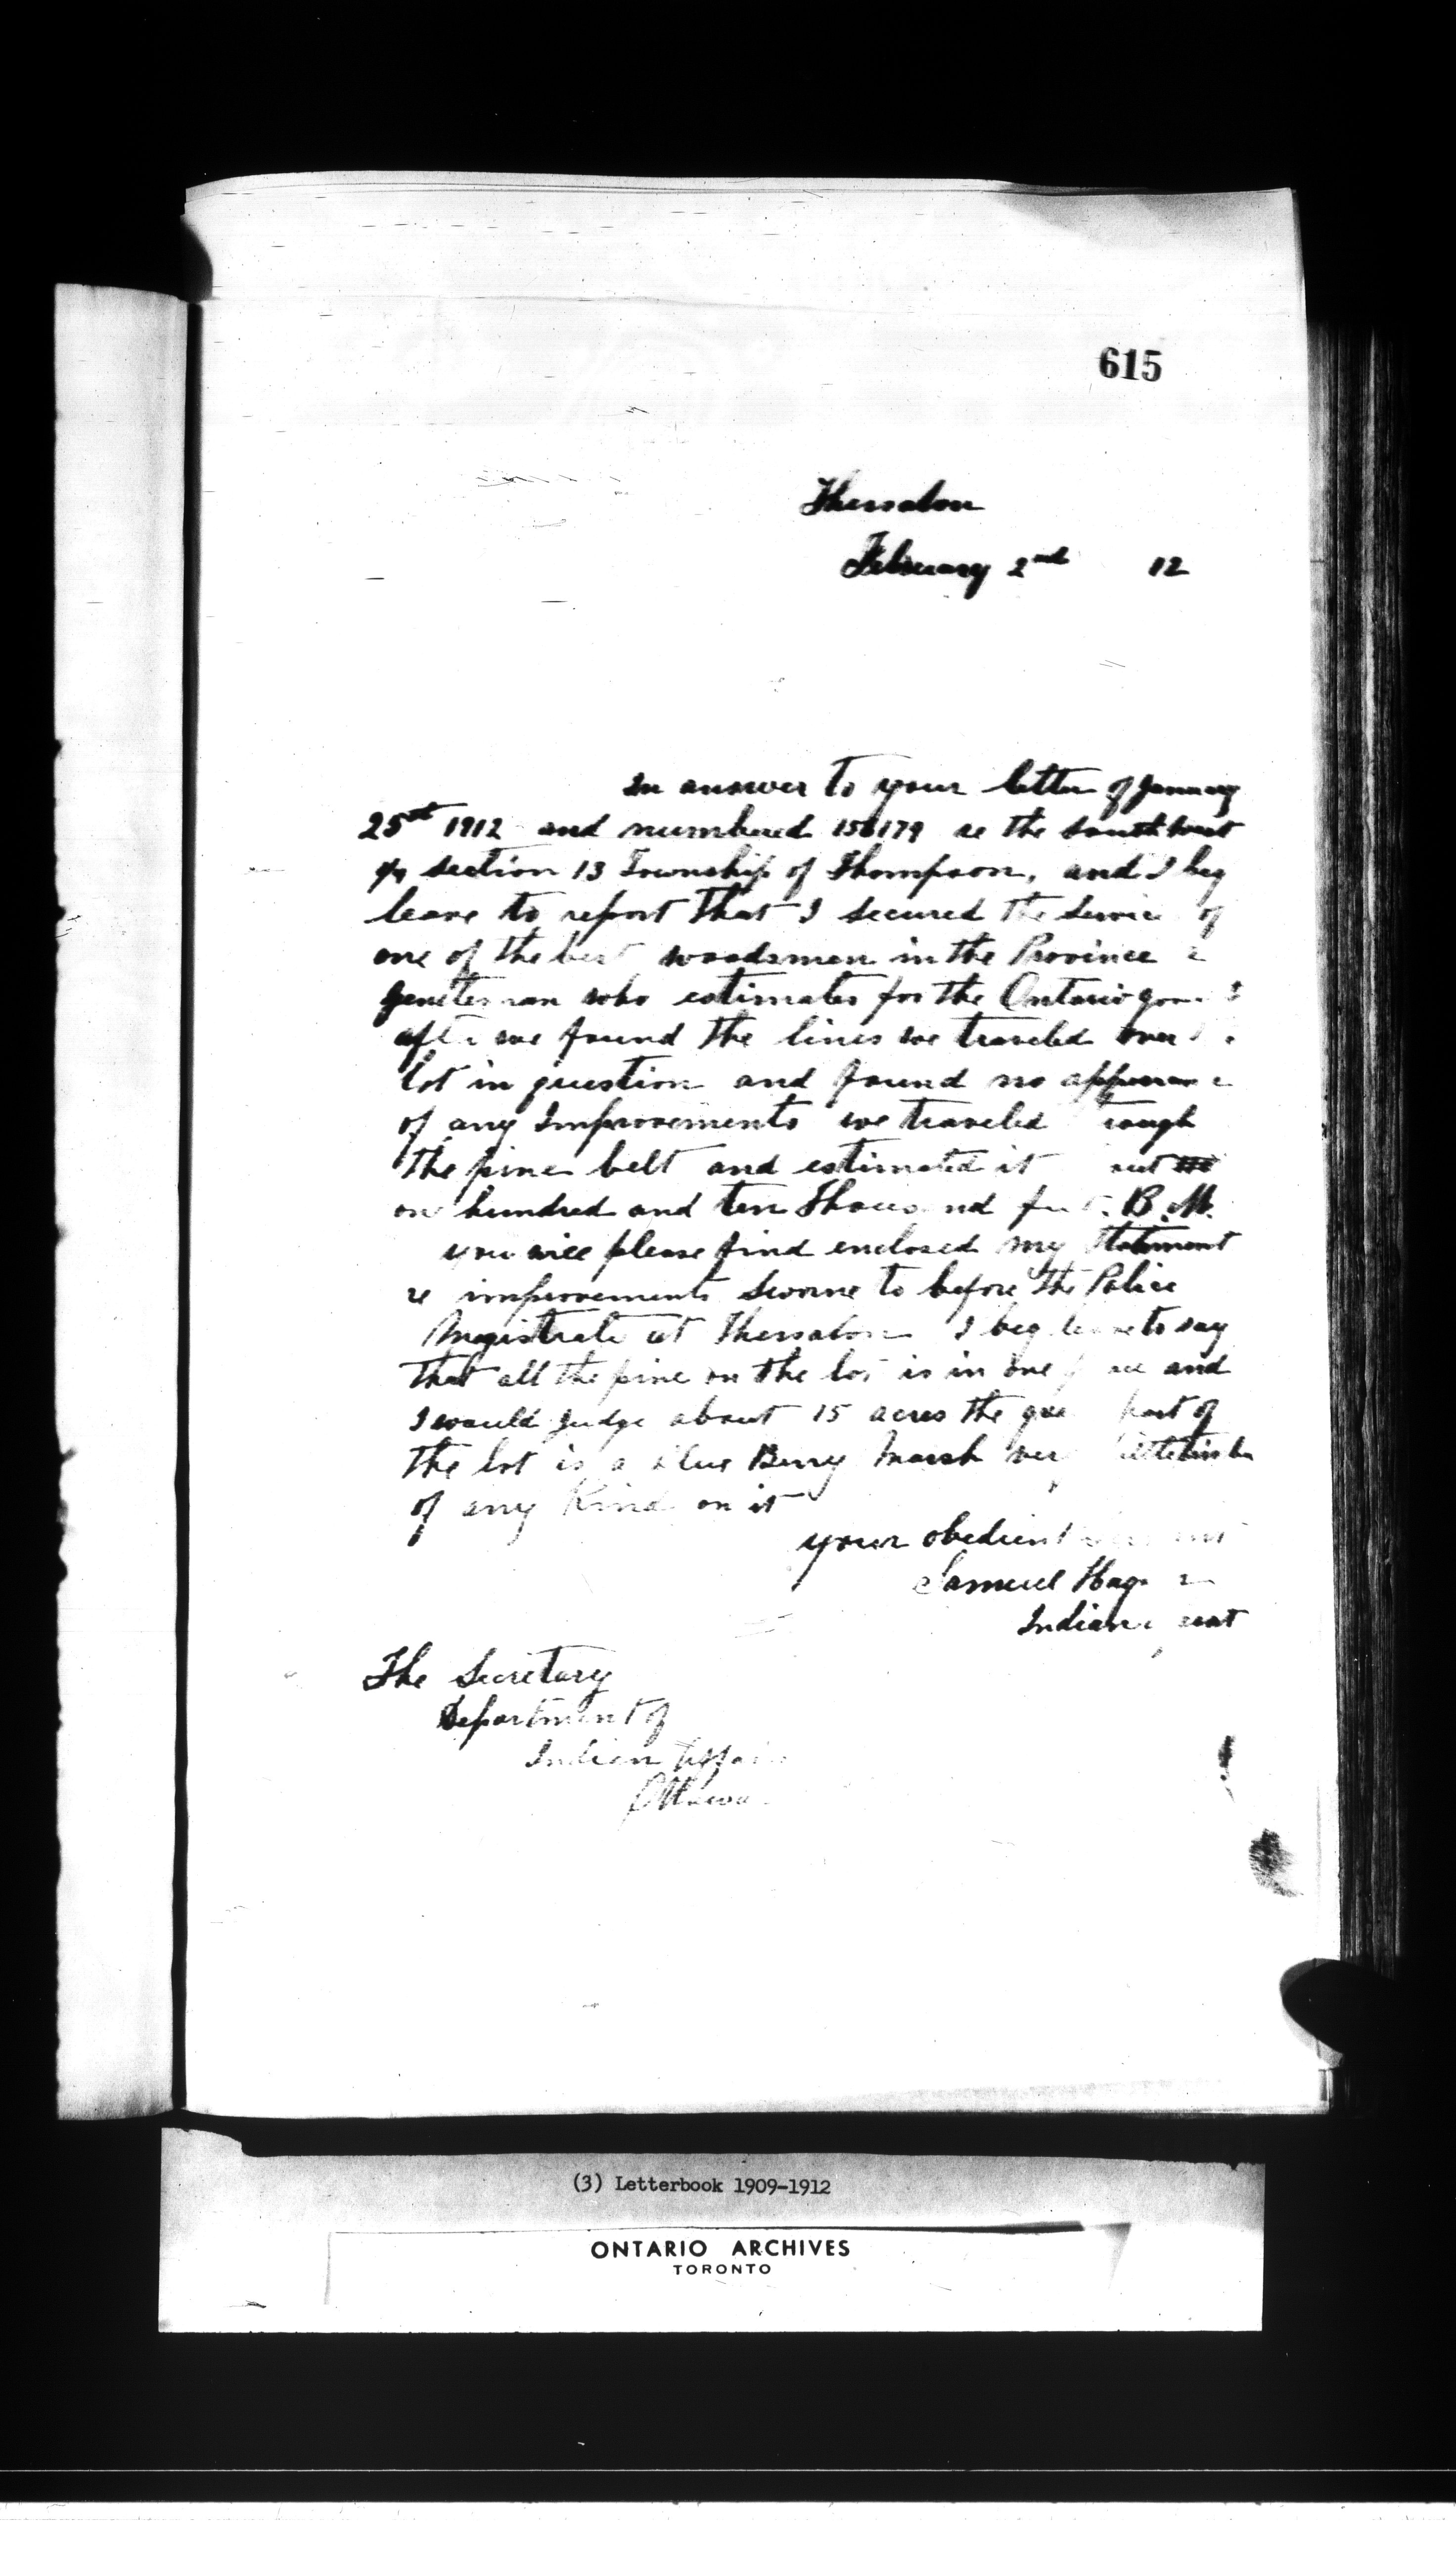 615
Thessalon
February 2nd 12
In answer to your letter of January
25th 1912 and numbered 156179 re the southwest
1/4 section 13 Township of Thompson, and I beg
leave to report that I secured the service of
one of the best woodsmen in the Province a
who estimates for the Ontario
after we found the lines we traveled over
lot in question and found no appearance
of any Improvements we traveled
the pine belt and estimated it
on hundred and ten Thousand feet B.M.
you will please find enclosed my statement
re improvements sworne to before the Police
Magistrate at Thessalon I beg leave to say
that all the pine on the lot is in one and
I would judge about 15 acres the part of
the lot is a blue Berry Marsh very little
of any Kind on it
your obedient
Samuel
Indian
The Secretary
Department of
Indian Affairs
Ottawa
(3) Letterbook 1909-1912
ONTARIO ARCHIVES
TORONTO